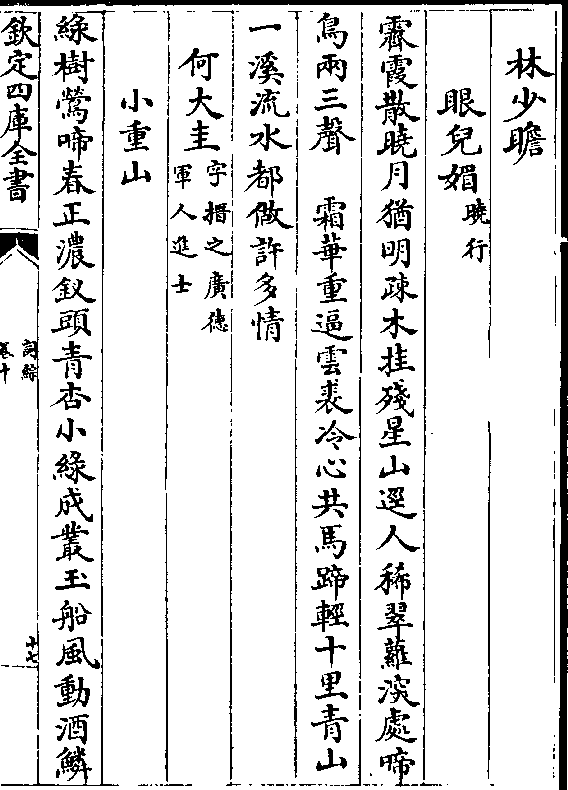 林少瞻
眼兒媚曉行
霽霞散曉月猶明疎木挂殘星山逕人稀翠蘿深處啼
鳥兩三聲　霜華重逼雲裘冷心共馬蹄輕十里青山
一溪流水都做許多情
何大圭字搢之廣德軍人進士
小重山
綠樹鶯啼春正濃釵頭青杏小綠成叢玉船風動酒鱗
欽定四庫全書
詞綜
卷十
十七